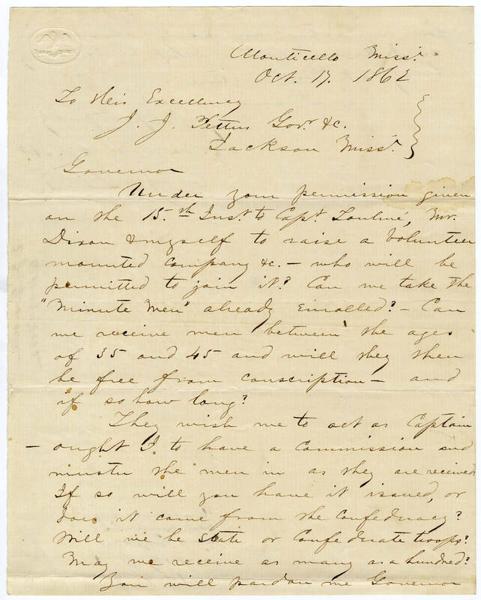 Monticello Miss.
Oct. 17. 1862
To His Excellency
J. J. Pettus Govr. &c.
Jackson Miss.
Governor
Under your permission given
on the 15.th Inst. to Capt. Mr.
Dixon & myself to raise a volunteer
mounted company &c. — who will be
permitted to join it? Can we take the
"Minute Men" already Enrolled? — Can
we receive men between the ages
of 35 and 45 and will they then
be free from conscription — and
if so how long?
They wish me to act as Captain
— ought I to have a Commission and
muster the men in as they are received
If so will you have it issued, or
does it come from the Confederacy?
Will we be state or Confederate troops?
May we receive as many as a hundred?
You will pardon me Governor